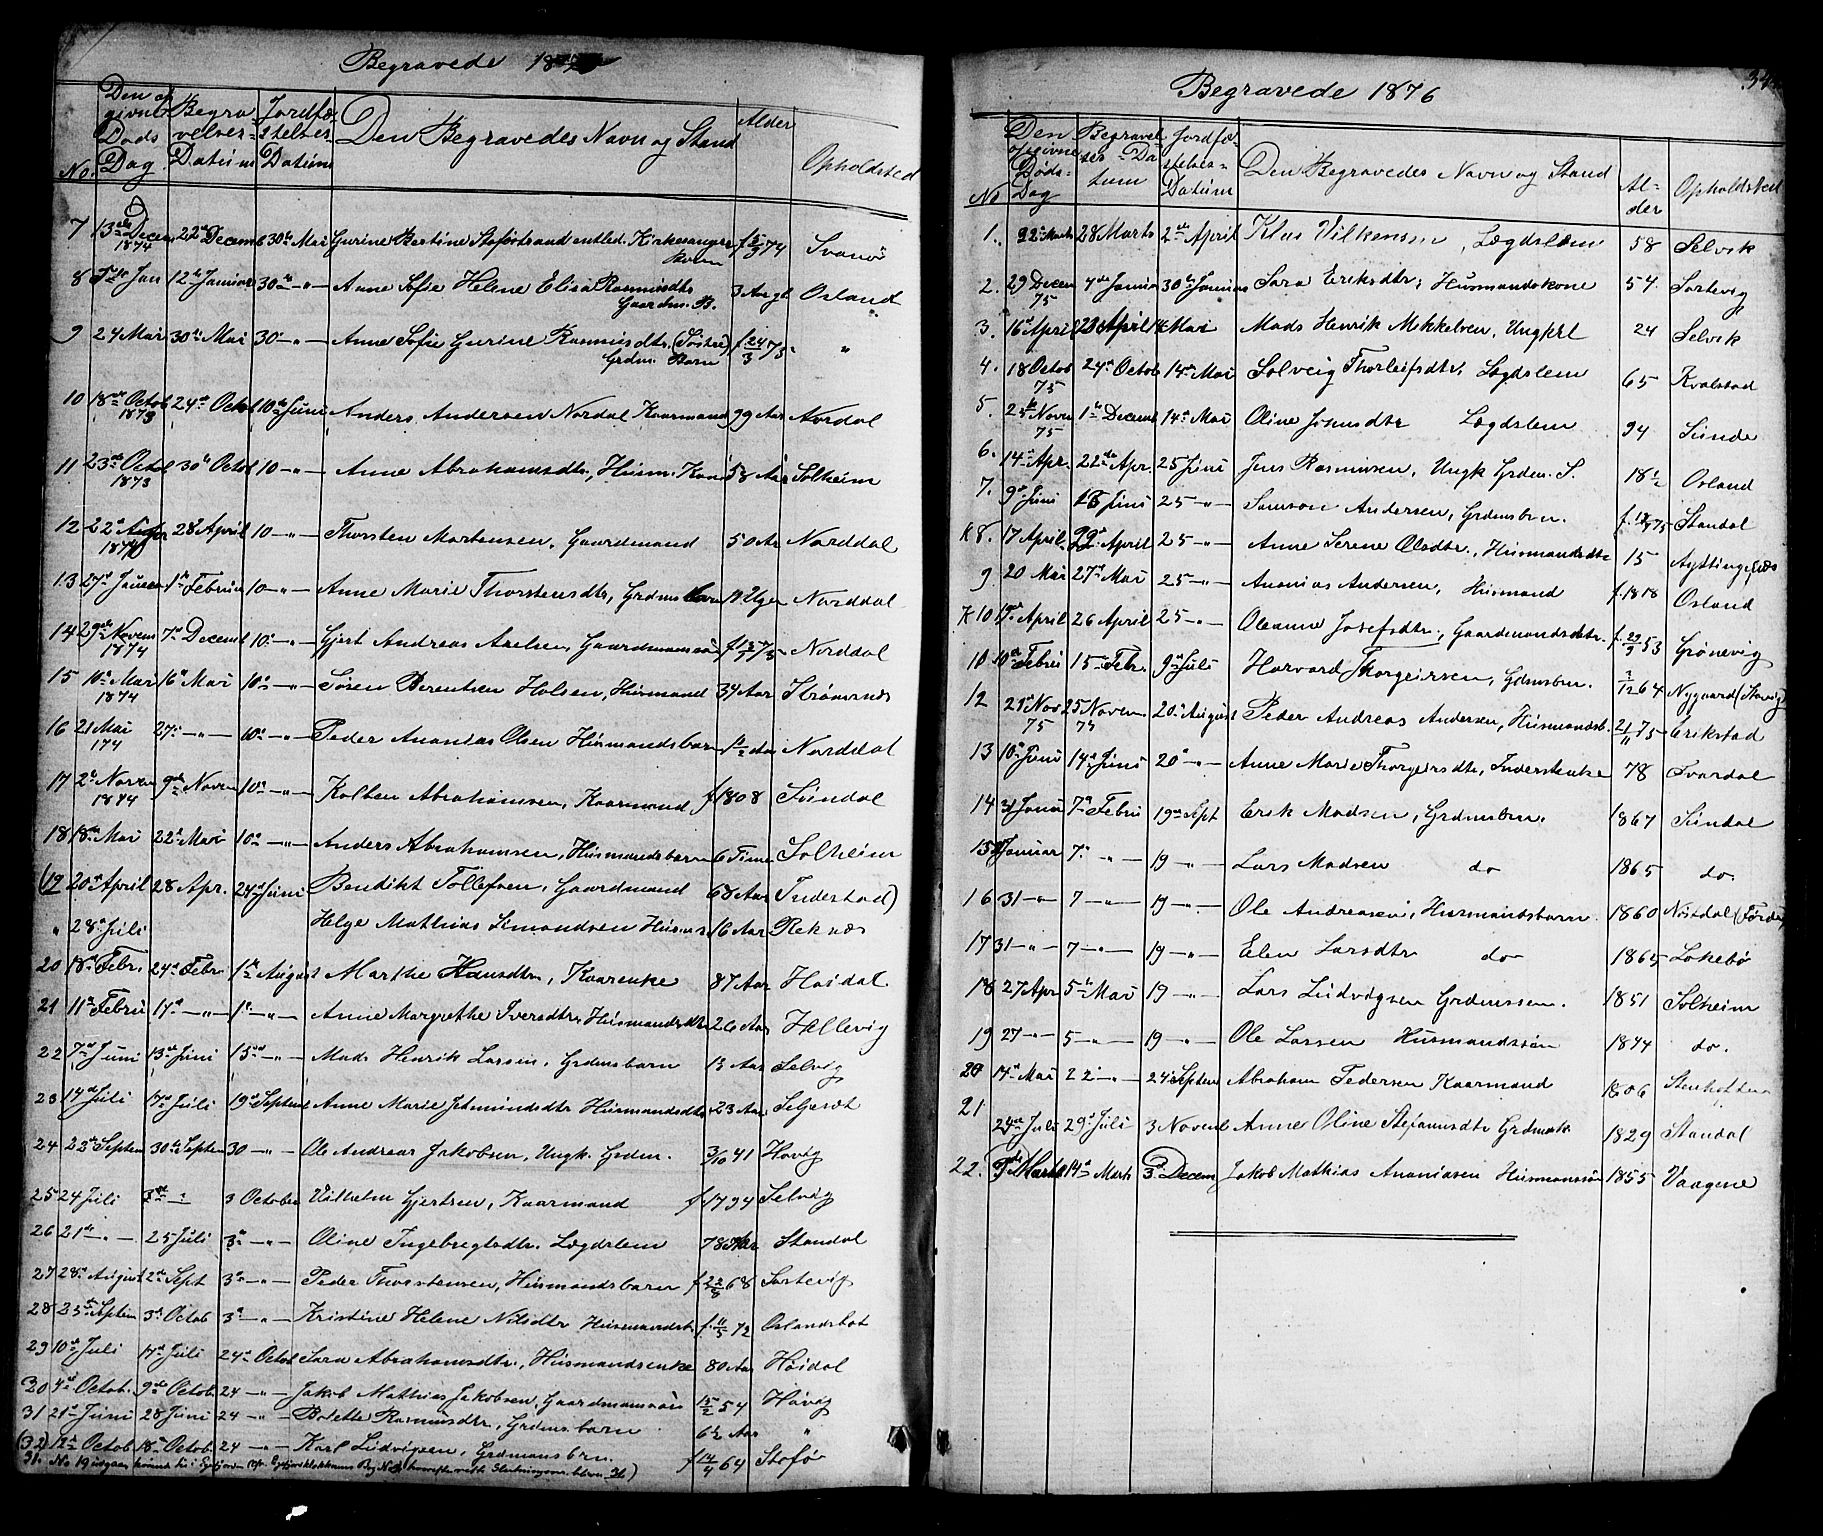 Begravede 187
No. Den opgivne Døds Dag Begravelses Datum Jordfæstelses Datum Den Begravedes Navn og Stand Alder Opholdsted
7 13de Decem 1874 22de Decemb 30te Mai Gurine Bertine Stoforstrand entled. Kirkesanger Barn f 5/3 74 Svanö
8 5te Jan 12te Januar 30 -"- Anne Sofie Helene Elisa Rasmusdtr Gaardm. B. 3 Aar gl Osland
9 24 Mai 30te Mai 30 -"- Anne Sofie Gurine Rasmusdtr. (Söstre) Grdm. Barn f 24/3 73 "
10 18de Octob 1873 24de Octob 10de Juni Anders Andersen Nordal Kaarmand 99 Aar Nordal
11 23de Octob 1873 30te Octob 10 -"- Anne Abrahamsdtr., Husm. Kone 58 Aar Solheim
12 22de 1874 28 April 10 -"- Thorsten Mortensen, Gaardmand 50 Aar Norddal
13 27de Januar 1te Februar 10 -"- Anne Marie Thorstensdtr., Grdms barn Uger Norddal
14 29de Novem 1874 7de Decemb 10 -"- Gjert Andreas Axelsen, Gaardmandssön f 12/7 73 Norddal
15 10de Mai 1874 16de Mai 10 -"- Sören Berentsen Holsen, Husmand 34 Aar Strömsnes
16 21 Mai 174 27 -"- 10 -"- Peder Ananias Olsen Husmandsbarn 1 1/2 Aar Norddal
17 2de Novem 1874 9de Novem 10 -"- Kolben Abrahamsen, Kaarmand f 1808 Sündal
18 18de Mai 22de Mai 10 -"- Anders Abrahamsen, Husmandsbarn 6 Time Solheim
(19 20de April 28 Apr. 24de Juni Bendikt Tollefsen, Gaardmand 68 Aar Inderstad)
" 28de Juli Helge Mathias Simondsen Husms 16 Aar Reknæs
20 18de Febr. 24de Febr. 1te August Marthe Hansdtr., Kaarenke 87 Aar Høidal
21 11te Febru 17de -"- 1te -"- Anne Margrethe Iversdtr., Husmandsdtr 26 Aar Hellevig
22 7de Juni 13de Juni 15de -"- Mads Henrik Larsen, Grdmsbarn 13 Aar Selvig
23 14de Juli 17de Juli 19de Septemb Anne Marie Jedmundsdtr Husmandsdtr 23 Aar Seljesæt
24 22de Septem 30te Septem 30 -"- Ole Andreas Jakobsen, Ungk. Grdm. 3/10 41 Høvig
25 24 Juli " 3 October Vilhelm Gjertsen, Kaarmand f 1794 Selvig
26 21de -"- 25 Juli 3de -"- Oline Ingebregtsdtr. Lægdslem 78 Aar Standal
27 28de August 2de Sept 3de -"- Peder Thorstensen, Husmandsbarn f 22/8 68 Sortevig
28 23de Septem 3de Octob 3de -"- Kristine Helene Nilsdtr Husmandsb f. 11/5 72 Oslandsbot
29 10de Juli 17de Juli 24de Octob Sara Abrahamsdtr., Husmandsenke 80 Aar Høidal
30 4de Octob. 9de Octob. 24 -"- Jakob Mathias Jakobsen, Gaardmanssön 15/2 54 Høvig
31 21de Juni 28 Juni 24 -"- Bolette Rasmusdtr., Grdmsbarn 6 1/2 Aar "
(32) 12te Octob 18de Octob. 24 -"- Karl Ludvigsen, Grdmansbrn. f 14/4 64 Stofø
31. No 19 udgaar
Begravede 1876
No Den opgivne Døds-Dag Begravelses-Datum Jordfæstelses-Datum Den Begravedes Navn og Stand Alder Opholdsted
1. 22 Marts 28 Marts 2de April Klas Vilkensen, Lægdslem 58 Selvik
2. 29 Decem 75 4de Januar 30te Januar Sara Eriksdtr; Husmandskone 54 Sortevig
3. 16de April 23 April 14 Mai Mads Henrik Mikkelsen, Ungkrl 24 Selvik
4. 18 Octob 75 24de Octob 14de Mai Solveig Thorleifsdtr, Lægdslem 65 Kvalstad
5. 25de Novem 75 1te Decemb 14de Mai Oline Josnsdtr Lægdslem 94 Sunde
6. 14de Apr. 22de Apr. 25 Juni Jens Rasmussen, Ungk Grdm. S. 18 1/2 Osland
7. 9de Juni 16 Juni 25 -"- Samson Andersen, Grdmsbrn. f. 18/8 75 Standal
K 8. 17 April. 22de April 25 -"- Anne Serene Olsdtr., Husmandsdtr 15 Ayttingsnæs
9 20 Mai 27de Mai 25 -"- Ananias Andersen, Husmand f. 1818 Osland
K 10 17de April 26 April 25 -"- Oleanne Josefsdtr., Gaardmandsdtr. f. 29/9 53 Grønevig
10 10de Febru 15 Febr. 9de Juli Harvard Thorgeirsen, Gdmsbrn. 2/12 64 Nygaard (Stavig)
12 21de Nov 75 25 Novem 75 20de August Peder Andreas Andersen, Husmandsb. 21/11 75 Erikstad
13 10de Juni 14de Juni 20 -"- Anne Marie Thorgeirsdtr., Inderstenke 78 Svardal
14 31 Janu 7de Febru 19de Sept Erik Madsen, Grdmsbrn. 1867 Sundal
15 Januar 7 -"- 19 -"- Lars Madsen do 1865 do.
16 31 -"- 7 -"- 19 -"- Ole Andreasen, Husmandsbarn 1860 Nøstdal (Førde)
17 31 -"- 7 -"- 19 -"- Elen Larsdtr do 1865 Løkebø
18 27 Apr 5te Mai 19 -"- Lars Ludvigsen Grdmssøn. 1851 Solheim
19 27 -"- 5 -"- 19 -"- Ole Larsen Husmandssøn 1874 do.
20 17de Mai 22 -"- 24 Septem Abraham Pedersen Kaarmand 1806
21 24de Juli 29de Juli 3 Novemb Anne Oline Stefanusdtr Grdmsk 1829 Standal
22. 7de Marts 14de Marts 3de Decem Jakob Mathias Ananiasen Husmanssön 1855 Vaagene